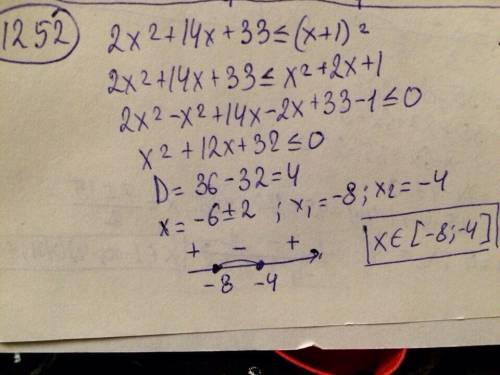 1252
2x²+14x+33≤(x+1)²
2x²+14x+33≤x²+2x+1
2x²-x²+14x-2x+33-1≤0
x²+12x+32≤0
D=36-32=4
x=-6±2 ; x₁=-8; x₂=-4
+ - +
-8 -4
x∈[-8;-4]